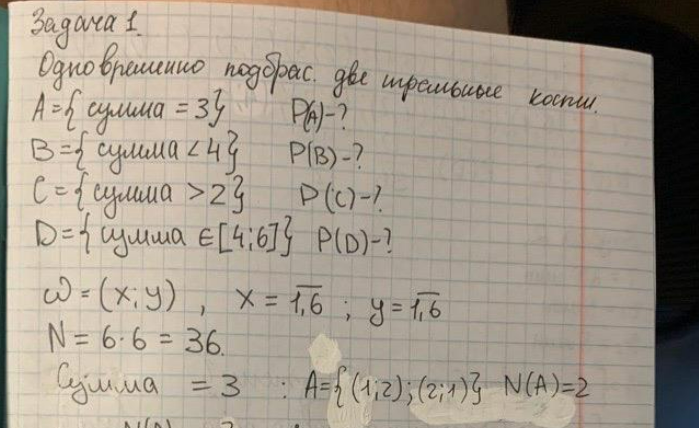 Задача 1.
Одновременно подбрас. две игральные кости.
A={сумма = 3} P(A)-?
B={сумма < 4} P(B)-?
C={сумма > 2} P(C)-?
D={сумма ∈ [4;6]} P(D)-?
ω = (x; y) , x = 1,6 ; y = 1,6
N = 6·6 = 36.
Сумма = 3 : A={(1;2);(2;1)} N(A)=2